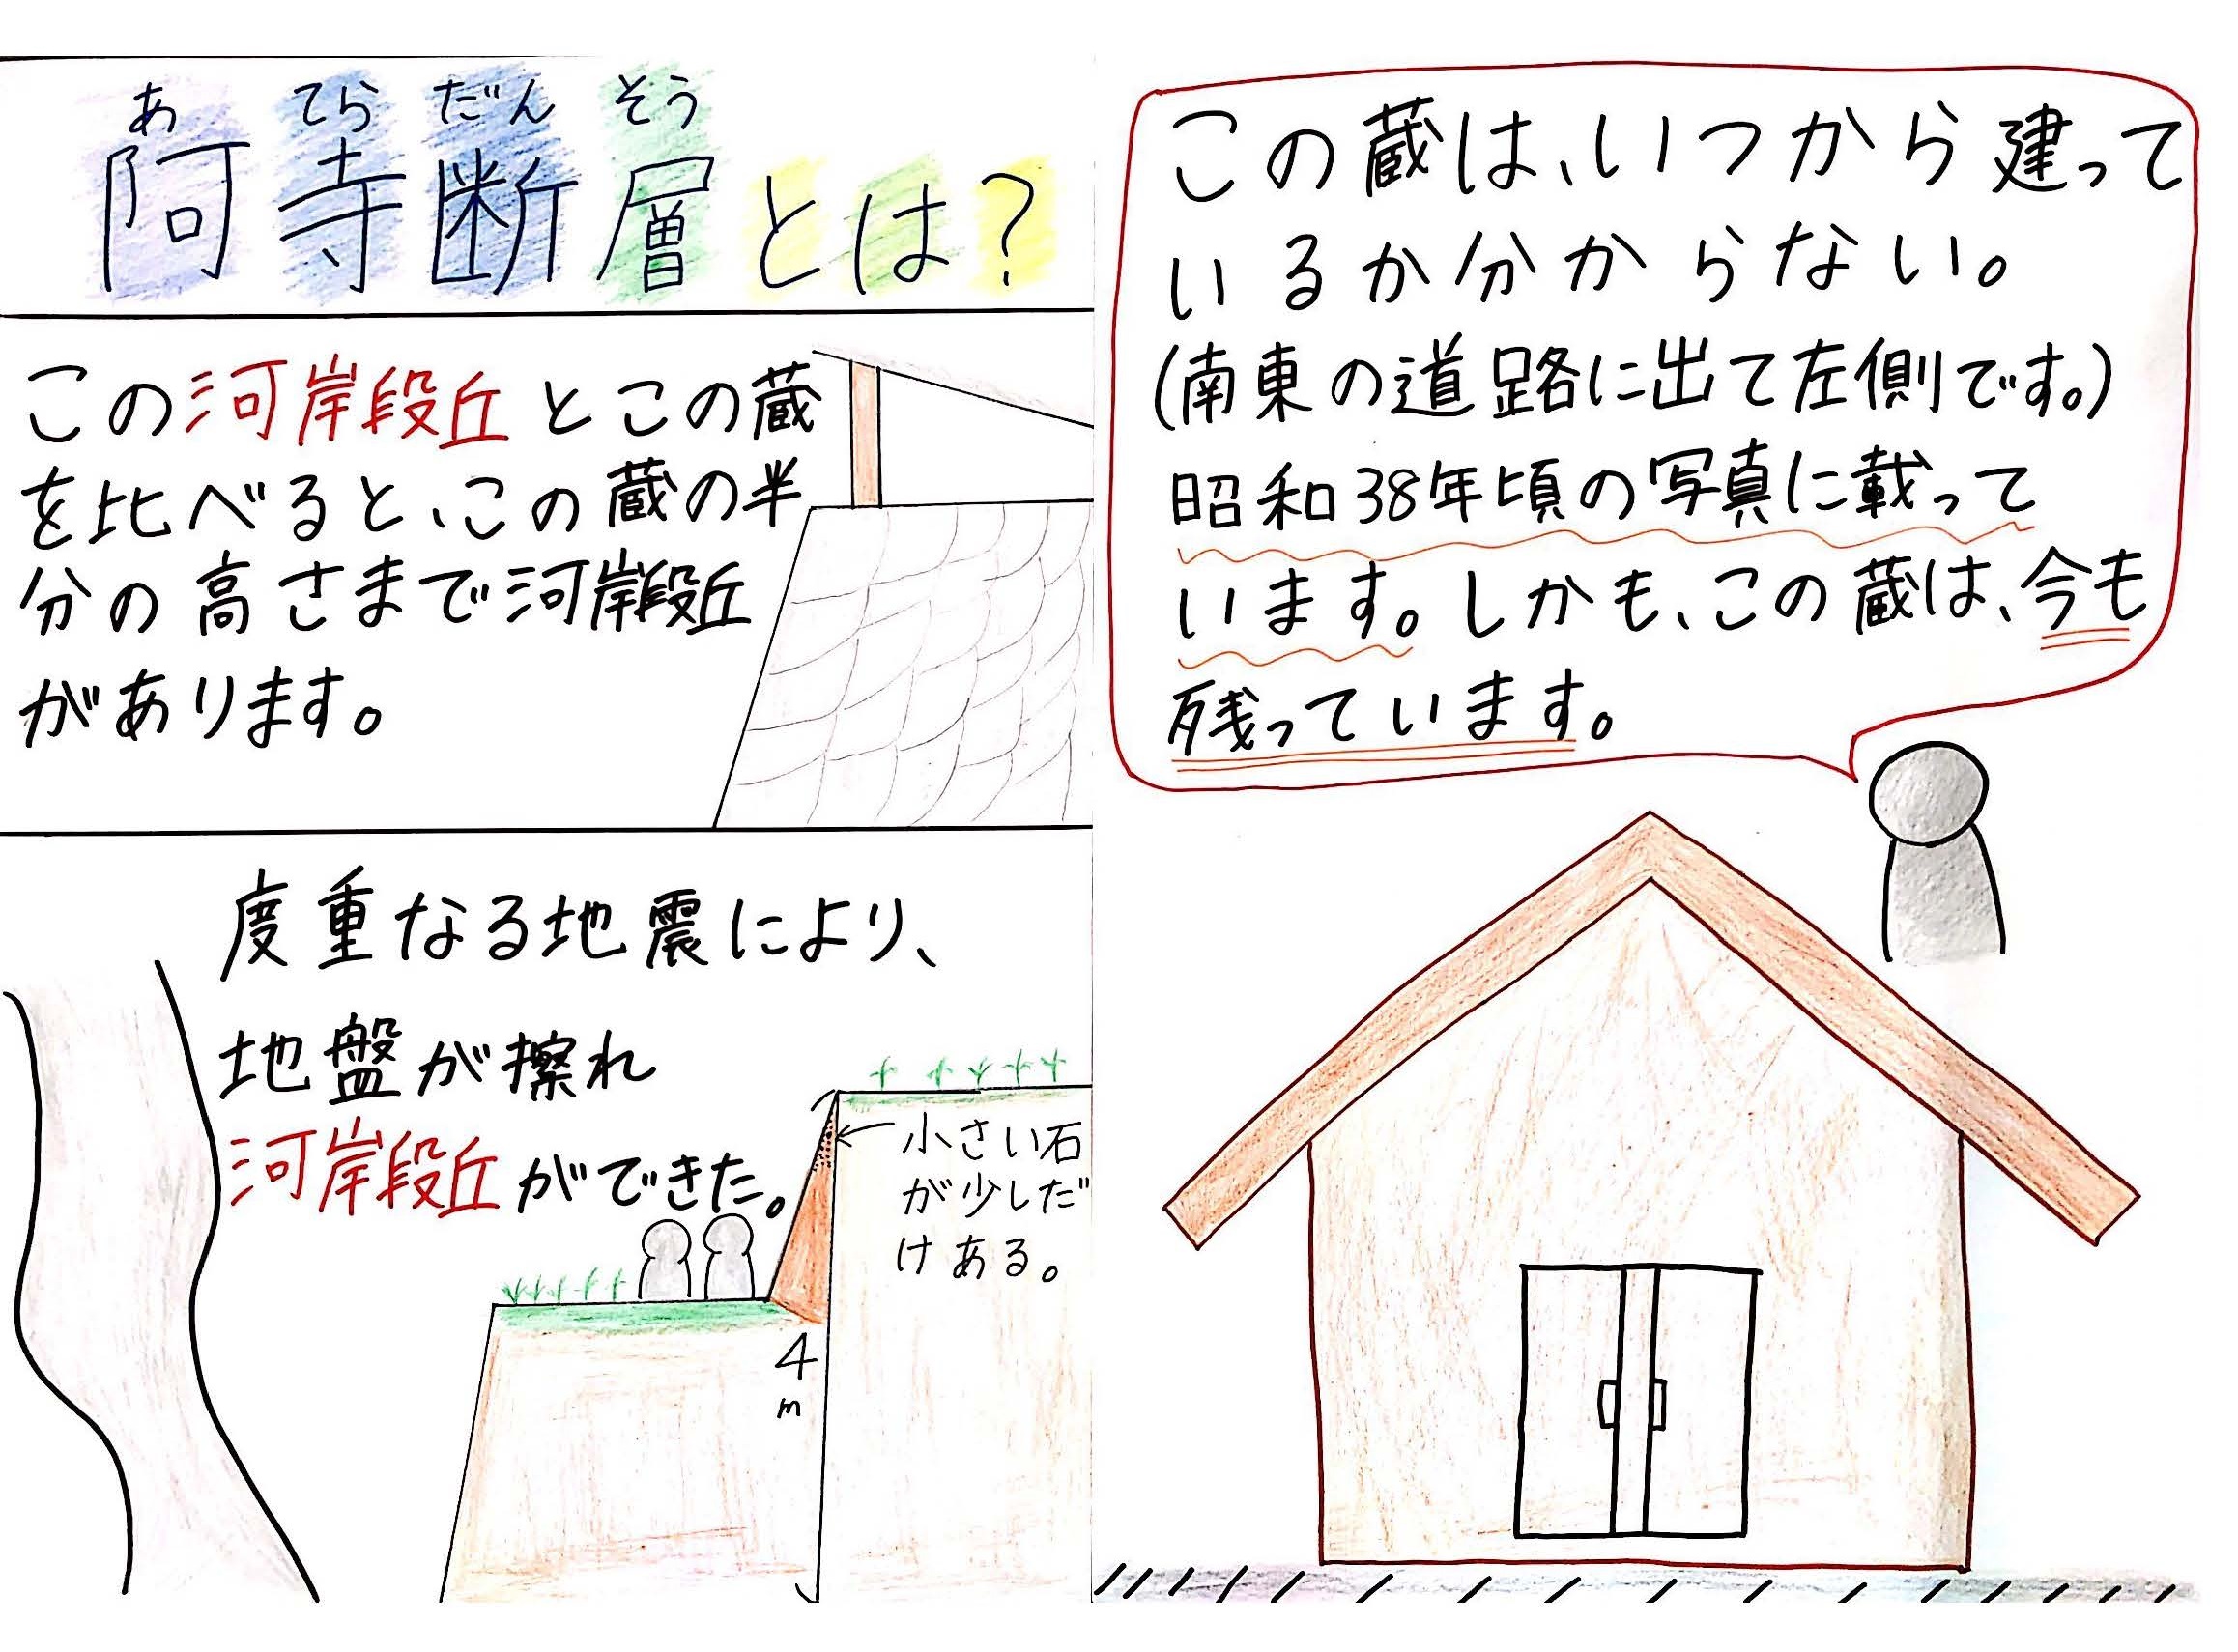 あ てら だん そう
阿寺断層とは?
この河岸段丘とこの蔵
を比べると、この蔵の半
分の高さまで河岸段丘
があります。
度重なる地震により、
地盤が擦れ
河岸段丘ができた。
小さい石
が少しだ
けある。
4
m
この蔵は、いつから建って
いるか分からない。
(南東の道路に出て左側です。)
昭和38年頃の写真に載って
います。しかも、この蔵は、今も
残っています。